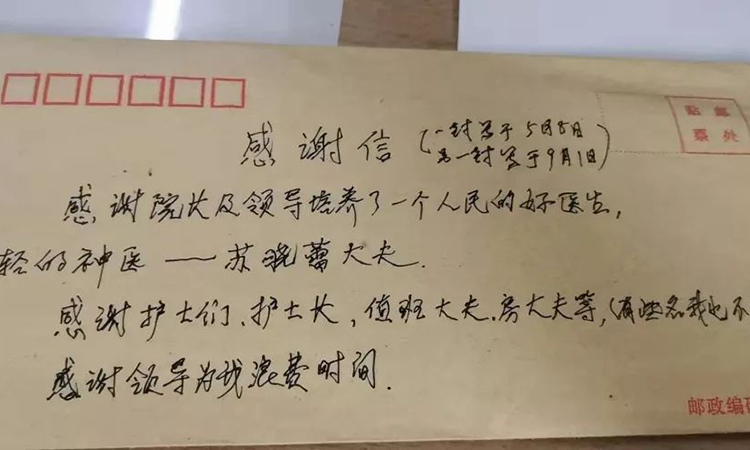 感谢信(一封写于5月8日
另一封写于9月1日)
贴邮
票处
感谢院长及领导培养了一个人民的好医生,
轻的神医——苏晓蕾大夫.
感谢护士们、护士长,值班大夫.房大夫等,(有些名我也不
感谢领导为我浪费时间.
邮政编